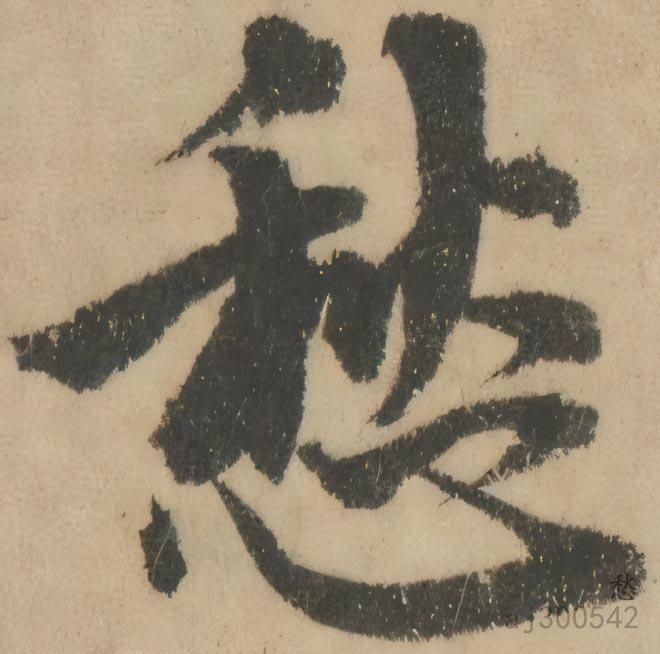 愁
愁
aj300542